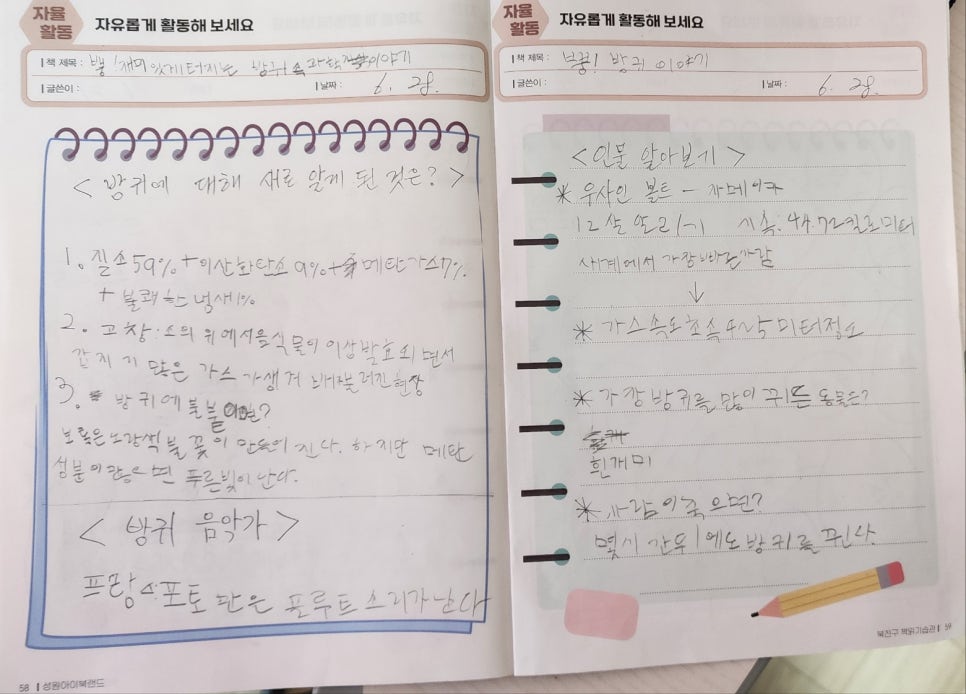 자율
활동
자유롭게 활동해 보세요
책 제목 : 뱅! 재미있게 터지는 방귀 속 과학 이야기
글쓴이 :
날짜 : 6. 28.
< 방귀에 대해 새로 알게 된 것은? >
1. 질소 59% + 이산화탄소 9% + 메탄가스 7%
+ 불쾌한 냄새 1%
2. 고창 : 소의 위에서 음식물이 이상발효되면서
갑자기 많은 가스가 생겨 배가 불러진 현상
3. 방귀에 불 붙이면?
보통은 노란색 불꽃이 만들어진다. 하지만 메탄
성분이 많으면 푸른빛이 난다.
< 방귀 음악가 >
프랑스 : 포토만은 플루트 소리가 난다
58 성원아이북랜드
자율
활동
자유롭게 활동해 보세요
책 제목 : 뿡! 방귀 이야기
글쓴이 :
날짜 : 6. 28.
< 인물 알아보기 >
* 우사인 볼트 - 자메이카
12살 달리기 시속 : 44.72킬로미터
세계에서 가장 빠른 사람
↓
* 가스 속도 초속 4~5미터 정도
* 가장 방귀를 많이 뀌는 동물은?
흰개미
* 사람이 죽으면?
몇 시간 후에도 방귀를 뀐다.
북전구 책읽기습관 59